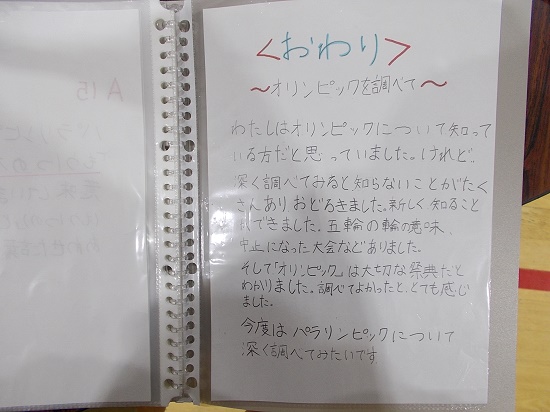 <おわり>
～オリンピックを調べて～
わたしはオリンピックについて知って
いる方だと思っていました。けれど、
深く調べてみると知らないことがたく
さんありおどろきました。新しく知ること
ができました。五輪の輪の意味、
中止になった大会などありました。
そして「オリンピック」は大切な祭典だと
わかりました。調べてよかったと、とても感じ
ました。
今度はパラリンピックについて
深く調べてみたいです
A 15